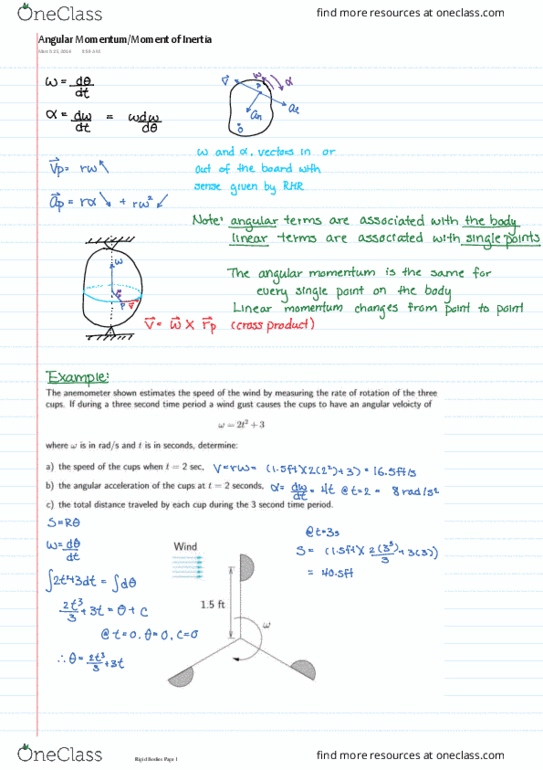 OneClass
find more resources at oneclass.com
Angular Momentum/Moment of Inertia
ω = dθ/dt
α = dω/dt = ωdω/dθ
V⃗p = rω↖
a⃗p = rα↘ + rω²↙
v⃗
ω
α
P
an
at
o
ω and α, vectors in or
out of the board with
sense given by RHR
Note: angular terms are associated with the body
linear terms are associated with single points
ω
P
v⃗
The angular momentum is the same for
every single point on the body
Linear momentum changes from point to point
V⃗ = ω⃗ × r⃗p (cross product)
Example:
The anemometer shown estimates the speed of the wind by measuring the rate of rotation of the three
cups. If during a three second time period a wind gust causes the cups to have an angular veloicty of
ω = 2t² + 3
where ω is in rad/s and t is in seconds, determine:
a) the speed of the cups when t = 2 sec, V=rω= (1.5ft)(2(2²)+3) = 16.5ft/s
b) the angular acceleration of the cups at t = 2 seconds, α= dω/dt = 4t @t=2 = 8rad/s²
c) the total distance traveled by each cup during the 3 second time period.
S=Rθ
ω=dθ/dt
∫2t²+3dt = ∫dθ
2t³/3 + 3t = θ + C
@ t=0, θ=0, C=0
∴ θ= 2t³/3 +3t
@t=3s
S = (1.5ft)(2(3³)/3 + 3(3))
= 40.5ft
Wind
1.5 ft
ω
OneClass
Rigid Bodies Page 1
find more resources at oneclass.com